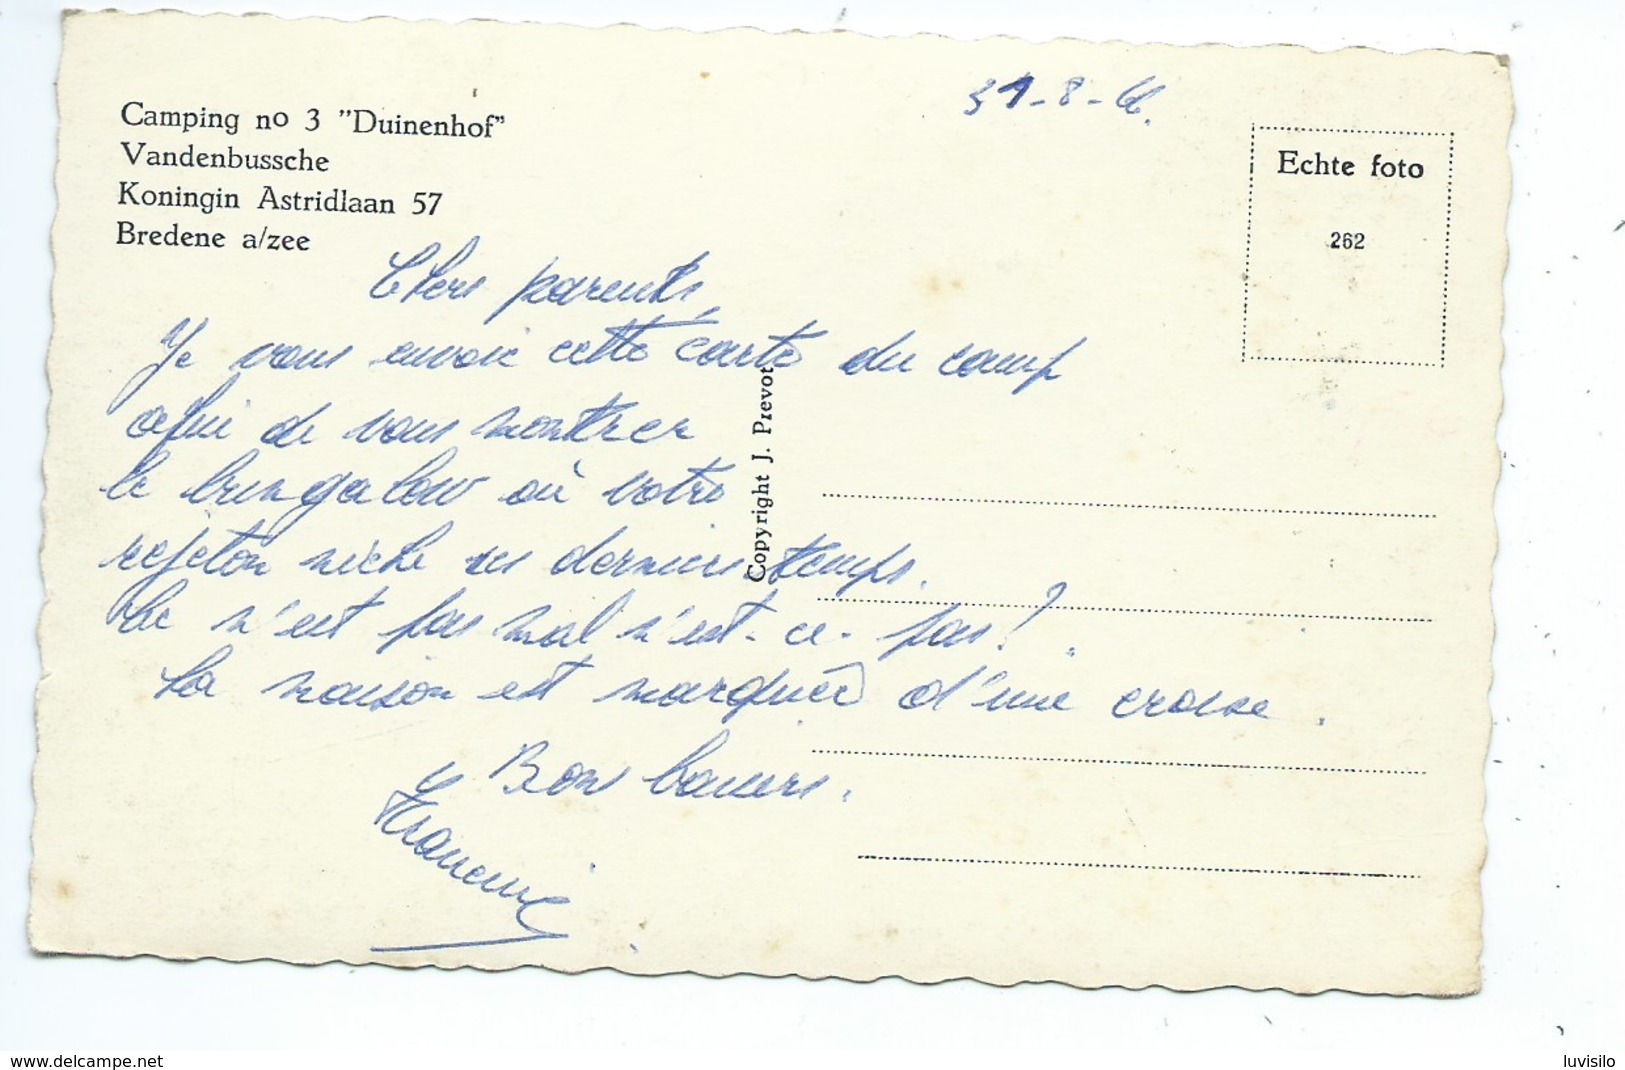 Camping no 3 "Duinenhof"
Vandenbussche
Koningin Astridlaan 57
Bredene a/zee
31-8-66.
Echte foto
262
Chers parents,
Je vous envoie cette carte du camp
afin de vous montrer
le bungalow où votre
rejeton niche ces derniers temps.
Ce n'est pas mal n'est-ce-pas?
La maison est marquée d'une croise.
Bons baisers.
Francine
Copyright J. Prevot
www.delcampe.net
luvisilo